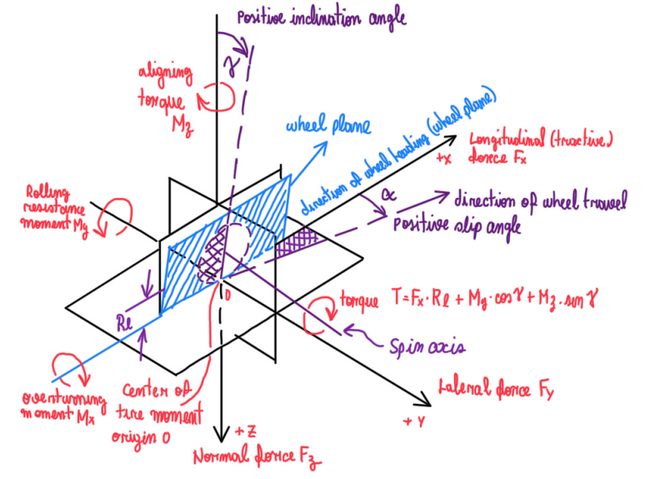 Positive inclination angle
γ
aligning
torque
Mz
wheel plane
direction of wheel heading (wheel plane)
Longitudinal (tractive)
force Fx
+X
α
direction of wheel travel
Positive slip angle
Rolling
resistance
moment My
O
Rl
torque T=Fx·Rl + My·cosγ+Mz·sinγ
Spin axis
overturning
moment Mx
Center of
tire moment
origin O
Lateral force Fy
+Y
+Z
Normal force Fz